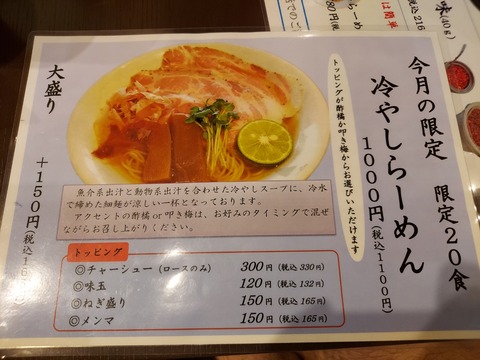 今月の限定 限定20食
冷やしらーめん
1000円(税込1100円)
トッピングが酢橘か叩き梅からお選びいただけます
大盛り
+150円(税込16
魚介系出汁と動物系出汁を合わせた冷やしスープに、冷水
で締めた細麺が涼しい一杯となっております。
アクセントの酢橘or叩き梅は、お好みのタイミングで混ぜ
ながらお召し上がりください。
トッピング
◎チャーシュー(ロースのみ) 300円(税込330円)
◎味玉 120円(税込132円)
◎ねぎ盛り 150円(税込165円)
◎メンマ 150円(税込165円)
味(40g)
税込216
は簡単
らーめ
80円